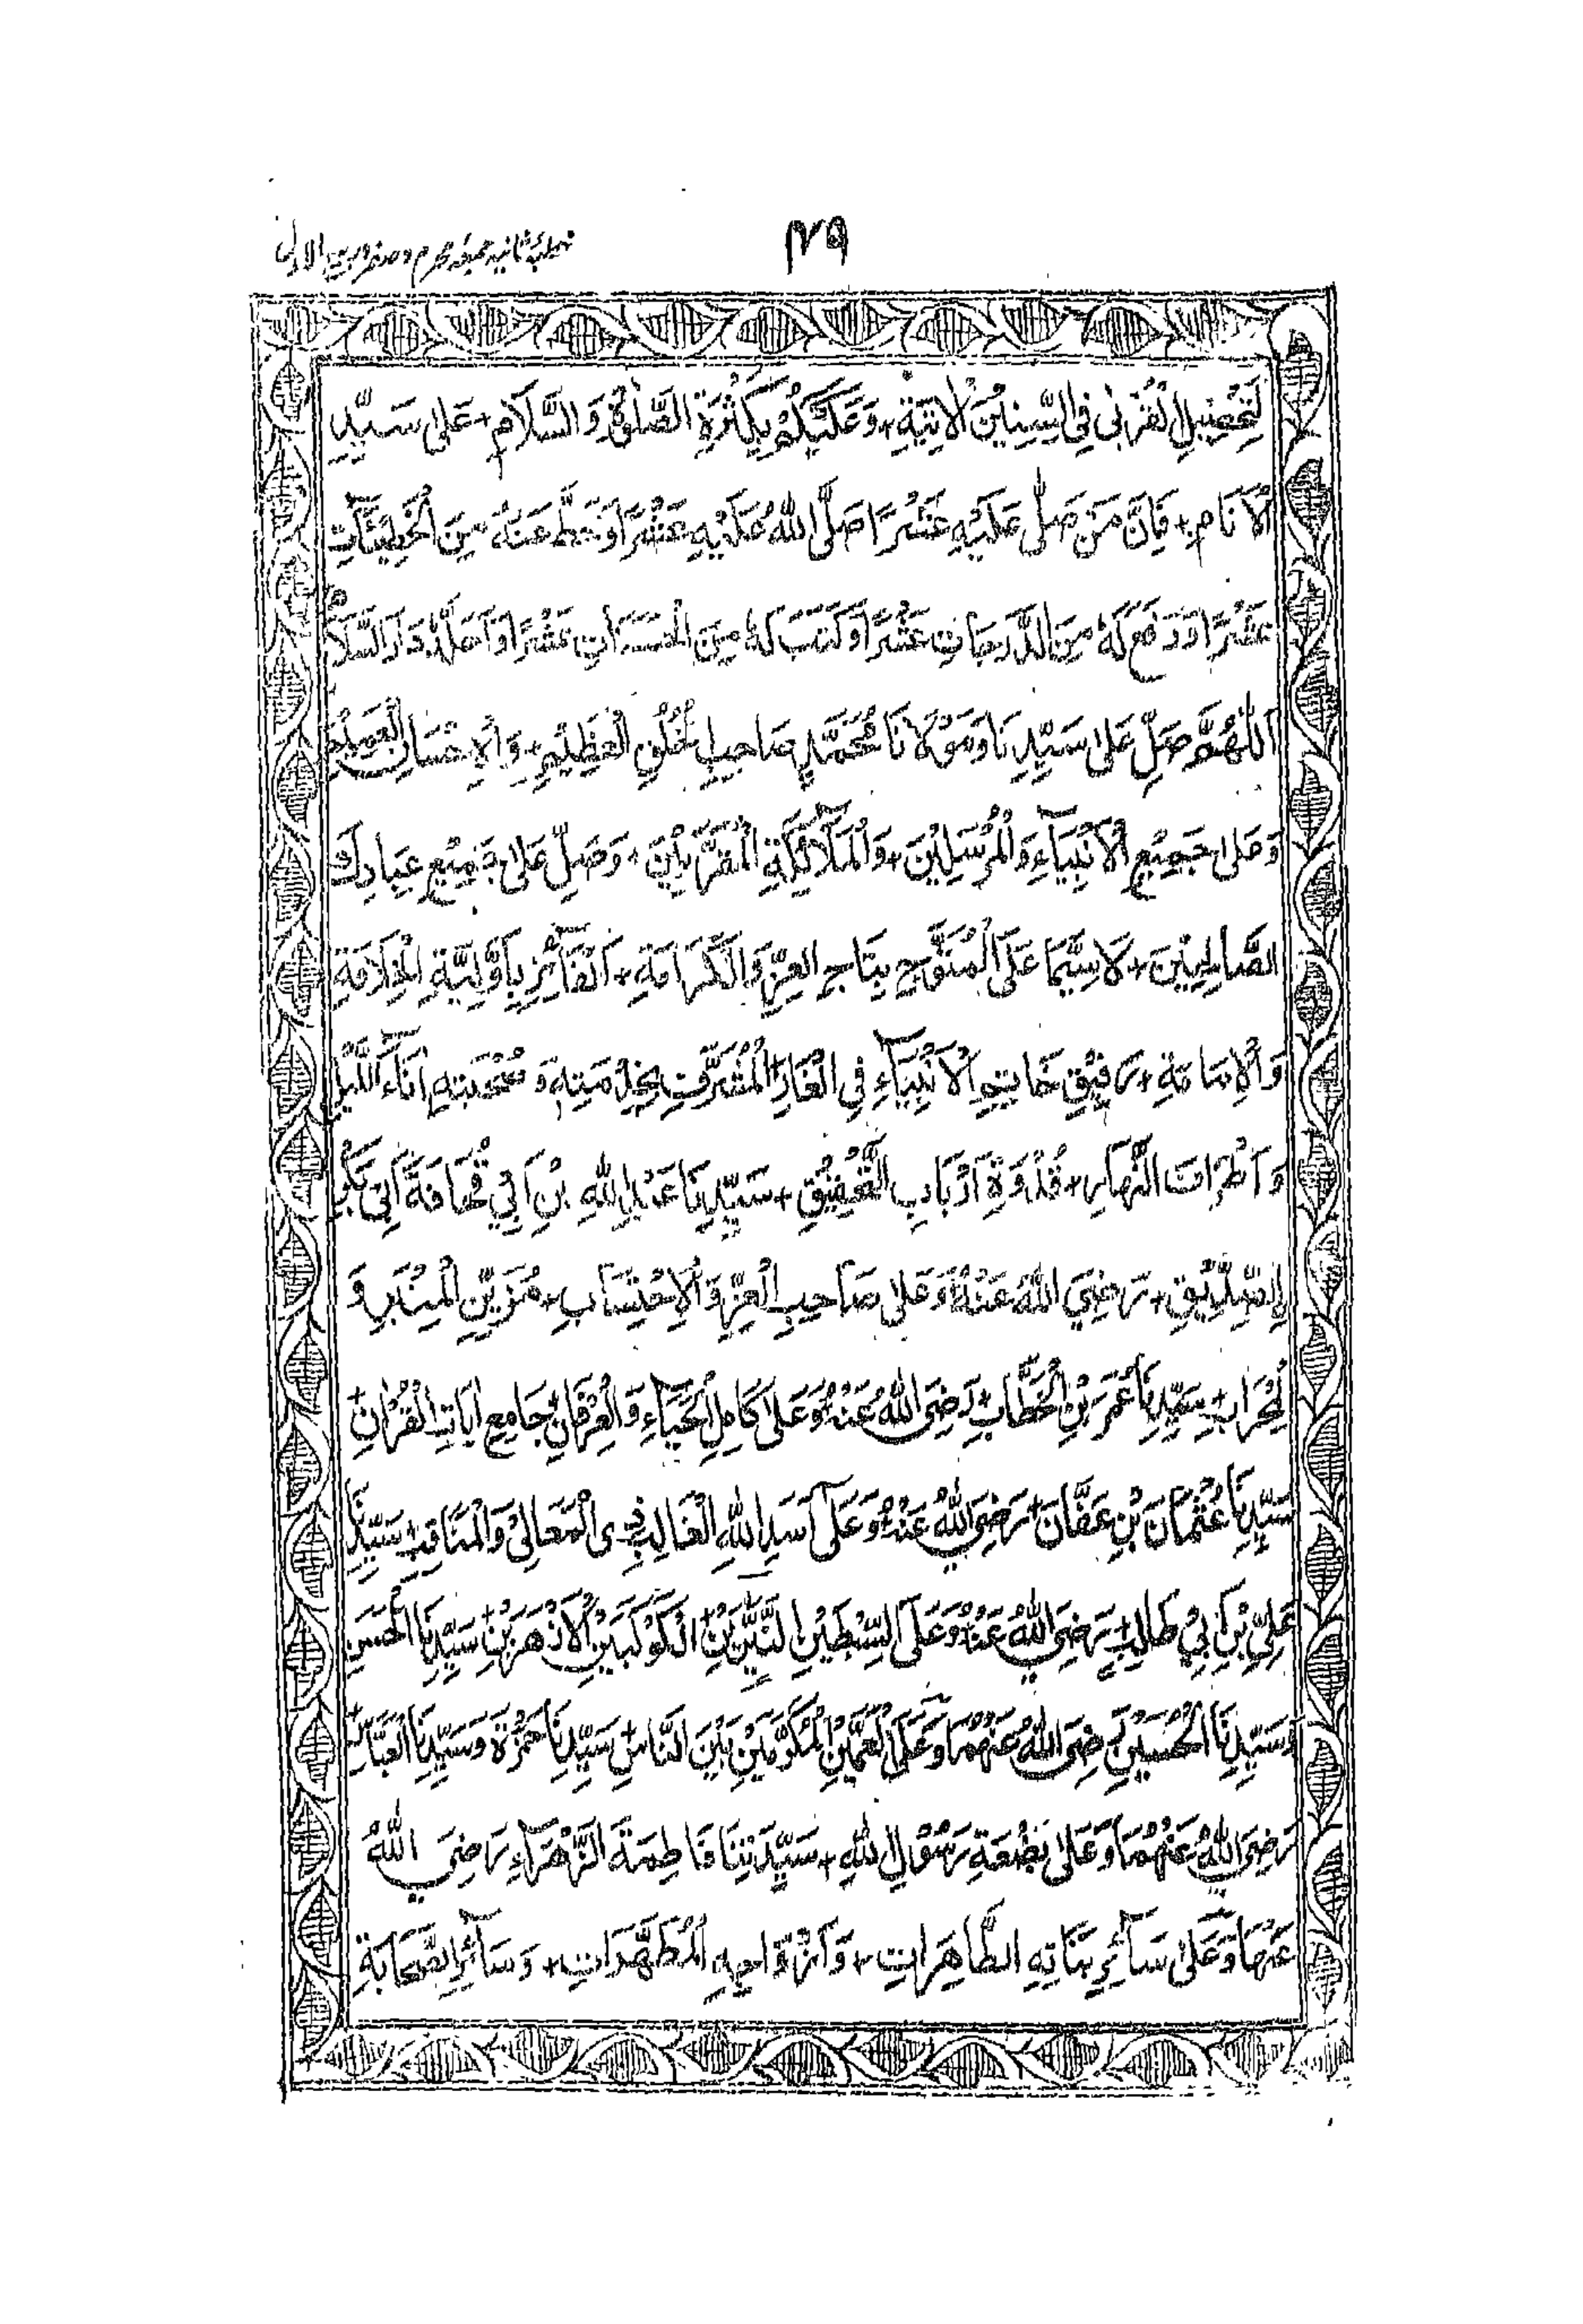 ۲۹
خطبہ ثانیہ جمعہ محرم و صفر و ربیع الاول
لِتَحْصِيْلِ الْقُرْبٰى فِى السِّنِيْنَ الْاٰتِيَةِ + وَعَلَيْكُمْ بِكَثْرَةِ الصَّلٰوةِ وَالسَّلَامِ + عَلٰى سَيِّدِ
الْاَنَامِ + فَاِنَّ مَنْ صَلّٰى عَلَيْهِ عَشْرًا صَلَّى اللهُ عَلَيْهِ عَشْرًا وَحَطَّ عَنْهُ مِنَ الْخَطِيْئَاتِ
عَشْرًا وَرَفَعَ لَهٗ مِنَ الدَّرَجَاتِ عَشْرًا وَكَتَبَ لَهٗ مِنَ الْحَسَنَاتِ عَشْرًا وَاَحَلَّهٗ دَارَ السَّلَامِ
اَللّٰهُمَّ صَلِّ عَلٰى سَيِّدِنَا وَمَوْلَانَا مُحَمَّدٍ صَاحِبِ الْخُلُقِ الْعَظِيْمِ + وَالْاِحْسَانِ الْعَمِيْمِ
وَعَلٰى جَمِيْعِ الْاَنْبِيَآءِ وَالْمُرْسَلِيْنَ + وَالْمَلَآئِكَةِ الْمُقَرَّبِيْنَ + وَصَلِّ عَلٰى جَمِيْعِ عِبَادِكَ
الصَّالِحِيْنَ + لَاسِيَّمَا عَلَى الْمُتَوَّجِ بِتَاجِ الْعِزِّ وَالْكَرَامَةِ + اَلْفَآئِزِ بِاَوَّلِيَّةِ الْخِلَافَةِ
وَالْاِمَامَةِ + رَفِيْقِ خَاتِمِ الْاَنْبِيَآءِ فِى الْغَارِ + الْمُشَرَّفِ بِخِدْمَتِهٖ وَصُحْبَتِهٖ اٰنَآءَ اللَّيْلِ
وَاَطْرَافَ النَّهَارِ + قُدْوَةِ اَرْبَابِ التَّحْقِيْقِ + سَيِّدِنَا عَبْدِ اللهِ بْنِ اَبِيْ قُحَافَةَ اَبِيْ بَكْرِ
اِلصِّدِّيْقِ + رَضِيَ اللهُ عَنْهُ + وَعَلٰى صَاحِبِ الْعِزِّ وَالْاِحْتِسَابِ + مُزَيِّنِ الْمِنْبَرِ وَ
الْمِحْرَابِ + سَيِّدِنَا عُمَرَ بْنِ الْخَطَّابِ + رَضِيَ اللهُ عَنْهُ + وَعَلٰى كَامِلِ الْحَيَآءِ وَالْعِرْفَانِ + جَامِعِ اٰيَاتِ الْقُرْاٰنِ +
سَيِّدِنَا عُثْمَانَ بْنِ عَفَّانَ + رَضِيَ اللهُ عَنْهُ + وَعَلٰى اَسَدِ اللهِ الْغَالِبِ + ذِى الْمَعَالِيْ وَالْمَنَاقِبِ + سَيِّدِنَا
عَلِيِّ بْنِ اَبِيْ طَالِبٍ + رَضِيَ اللهُ عَنْهُ + وَعَلَى السِّبْطَيْنِ النَّيِّرَيْنِ + الْكَوْكَبَيْنِ الْاَزْهَرَيْنِ + سَيِّدِنَا الْحَسَنِ
وَسَيِّدِنَا الْحُسَيْنِ رَضِيَ اللهُ عَنْهُمَا وَعَلَى الْعَمَّيْنِ الْمُكَرَّمَيْنِ بَيْنَ النَّاسِ + سَيِّدِنَا حَمْزَةَ وَسَيِّدِنَا الْعَبَّاسِ +
رَضِيَ اللهُ عَنْهُمَا وَعَلٰى بَضْعَةِ رَسُوْلِ اللهِ + سَيِّدَتِنَا فَاطِمَةَ الزَّهْرَآءِ رَضِيَ اللهُ
عَنْهَا وَعَلٰى سَآئِرِ بَنَاتِهِ الطَّاهِرَاتِ + وَاَزْوَاجِهِ الْمُطَهَّرَاتِ + وَسَآئِرِ الصَّحَابَةِ